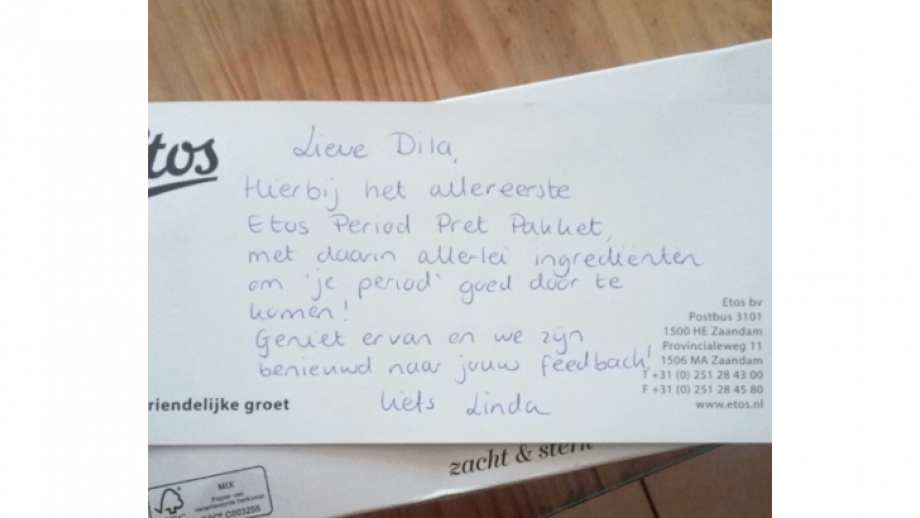 Etos
Lieve Dila,
Hierbij het allereerste
Etos Period Pret Pakket,
met daarin allerlei ingredienten
om 'je period' goed door te
komen!
Geniet ervan en we zijn
benieuwd naar jouw feedback!
liefs Linda
Etos bv
Postbus 3101
1500 HE Zaandam
Provincialeweg 11
1506 MA Zaandam
T +31 (0) 251 28 43 00
F +31 (0) 251 28 45 80
www.etos.nl
riendelijke groet
zacht & sterk
MIX
Papier van
verantwoorde herkomst
C003255